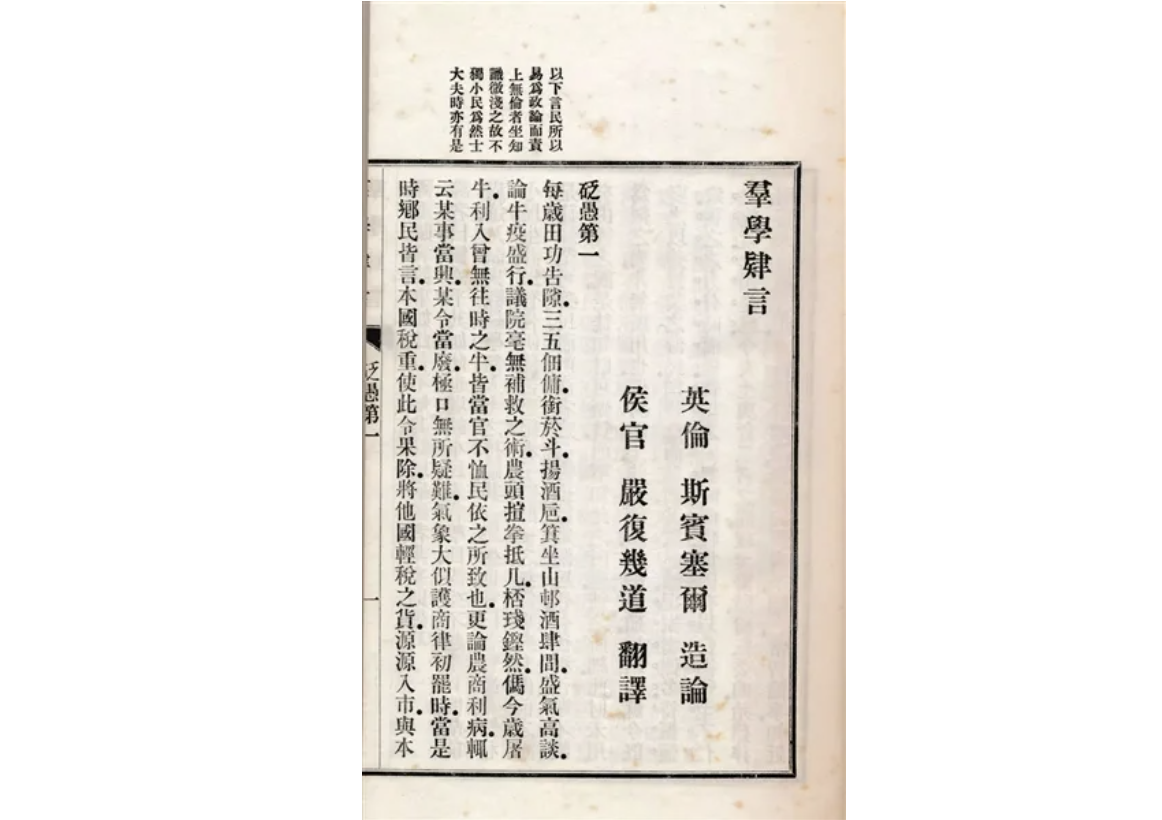 以下言民所以
易爲政論而責
上無倫者坐知
識微淺之故不
獨小民爲然士
大夫時亦有是
羣學肄言
英倫 斯賓塞爾 造論
侯官 嚴復幾道 翻譯
砭愚第一
每歲田功告隙三五個傭銜菸斗揚酒卮箕坐山邨酒肆間盛氣高談
論牛疫盛行議院毫無補救之術農頭揎拳抵几桮琖鏗然儰今歲屠
牛利入曾無往時之半皆當官不恤民依之所致也更論農商利病輒
云某事當興某令當廢極口無所疑難氣象大似護商律初罷時當是
時鄉民皆言本國稅重使此令果除將他國輕稅之貨源源入市與本
砭愚第一
一